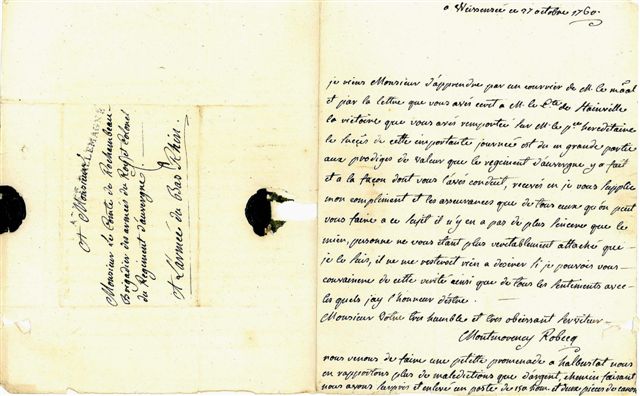 a Weissensée ce 27 octobre 1760.
je viens Monsieur d'apprendre par un courrier de M. le maal
et par la lettre que vous avés ecrit a M. le Cte. de Stainville
la victoire que vous avés remportée sur M. le pce hereditaire
le succès de cette importante journée est du en grande partie
aux prodiges de valeur que le regiment d'auvergne y a fait
et a la façon dont vous l'avés conduit, recevés en je vous supplie
mon compliment et les assurances que de tous ceux qu'on peut
vous faire a ce sujet il n'y en a pas de plus sincere que le
mien, personne ne vous étant plus veritablement attaché que
je le suis, il ne me resteroit rien a desirer si je pouvois vous
convaincre de cette verité ainsi que de tous les sentiments avec
les quels jay l'honneur d'être.
Monsieur votre tres humble et tres obeissant serviteur
Montmorency Robecq
nous venons de faire une petitte promenade a halberstat nous
en rapportons plus de maledictions que d'argent, chemin faisant
nous avons surpris et enlevé un poste de 150 hom. et deux pieces de canon
A Monsieur
Monsieur le Comte de Rochambeau
Brigadier des armées du Roy et Colonel
du Regiment d'auvergne
A L'armée du Bas Rhin.